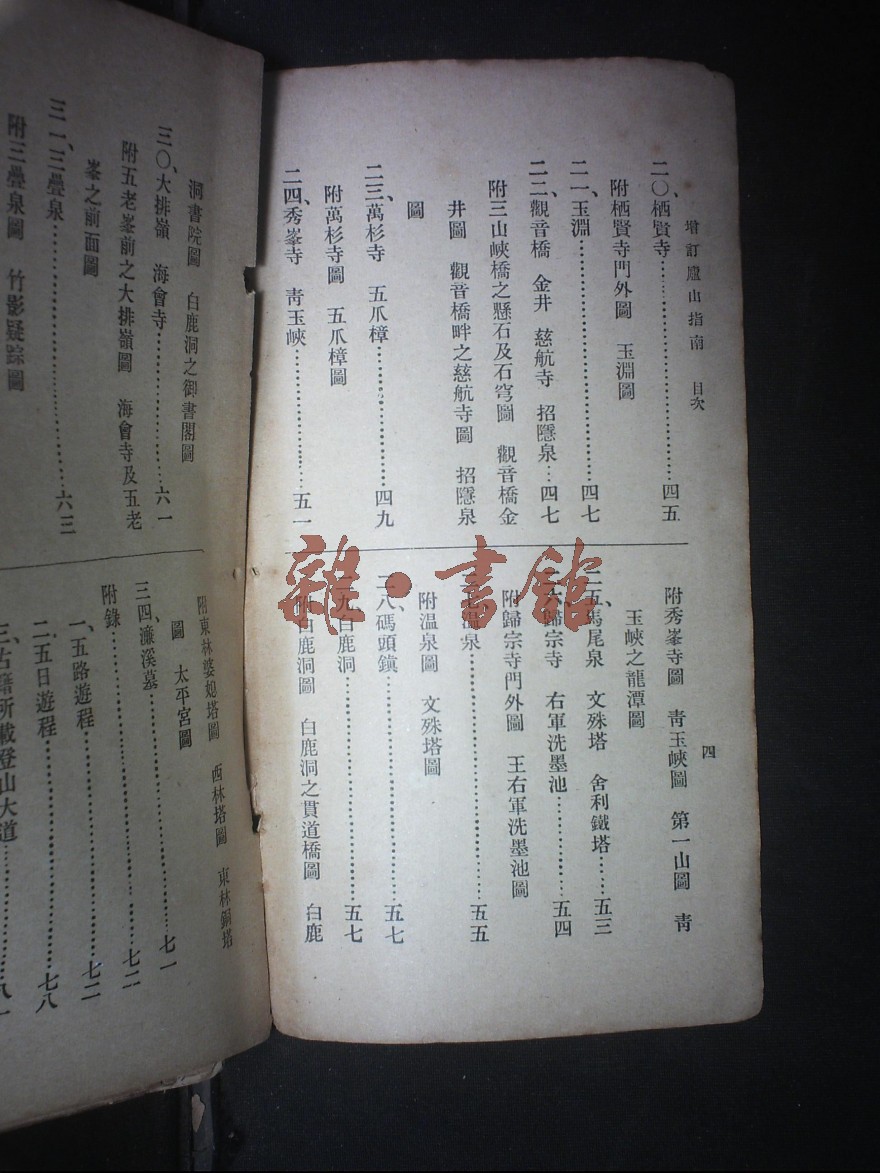 增訂廬山指南　目次
二〇、栖賢寺……四五
附栖賢寺門外圖　玉淵圖
二一、玉淵……四七
二二、觀音橋　金井　慈航寺　招隱泉…四七
附三山峽橋之懸石及石穹圖　觀音橋金
井圖　觀音橋畔之慈航寺圖　招隱泉
圖
二三、萬杉寺　五爪樟……四九
附萬杉寺圖　五爪樟圖
二四、秀峯寺　靑玉峽……五一
四
附秀峯寺圖　靑玉峽圖　第一山圖　靑
玉峽之龍潭圖
二五、馬尾泉　文殊塔　舍利鐵塔……五三
歸宗寺　右軍洗墨池……五四
附歸宗寺門外圖　王右軍洗墨池圖
溫泉……五五
附温泉圖　文殊塔圖
二八、碼頭鎭……五七
二九、白鹿洞……五七
附白鹿洞圖　白鹿洞之貫道橋圖　白鹿
洞書院圖　白鹿洞之御書閣圖
三〇、大排嶺　海會寺……六一
附五老峯前之大排嶺圖　海會寺及五老
峯之前面圖
三一、三疊泉……六三
附三疊泉圖　竹影疑踪圖
附東林婆娑塔圖　西林塔圖　東林銅塔
圖　太平宮圖
三四、濂溪墓……七一
附錄……七二
一、五路遊程……七二
二、五日遊程……七八
三、古籍所載登山大道……八一
雜·書館